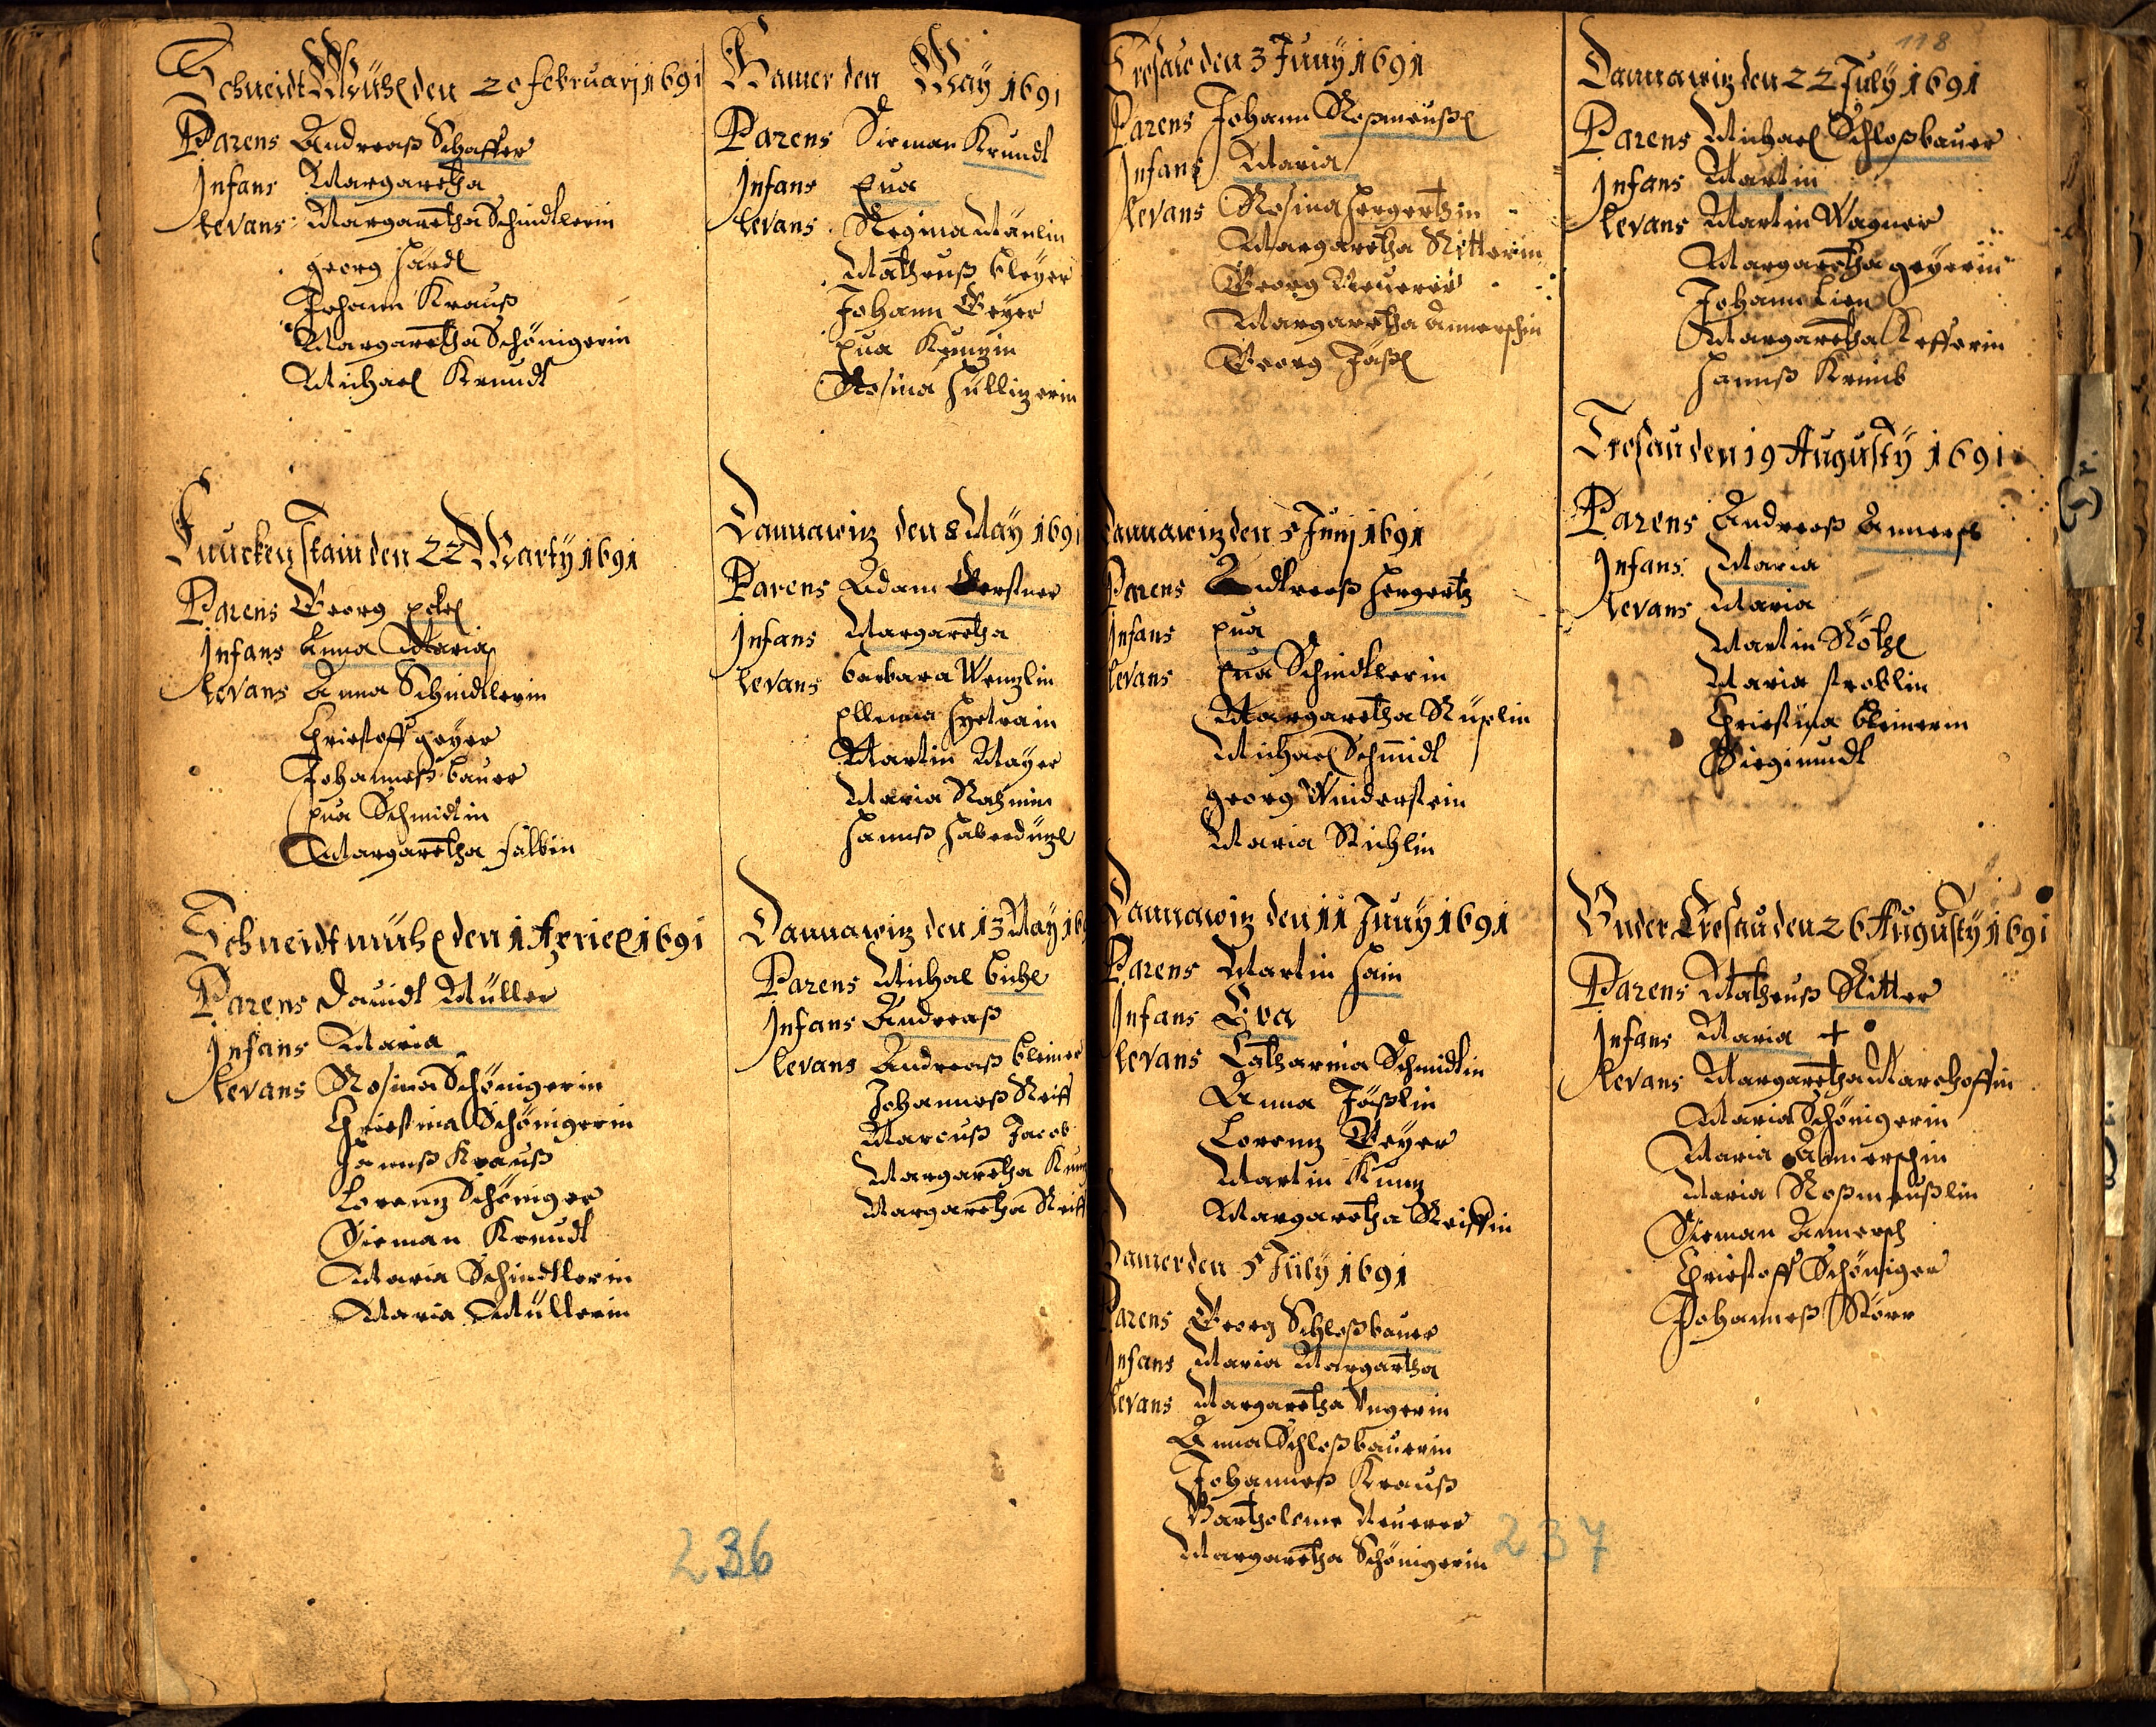 Schneidt Mühl den 20 februarj 1691
Parens Andreaß Schaffer
Infans Margaretha
levans Margaretha Schindtlerin
georg
Johann Krauß
Margaretha Schönigerin
Michael Krundt
Funckenstain den 22 Marty 1691
Parens Georg Eckel
Infans Anna Maria
levans Anna Schindtlerin
Christoff geyer
Johanneß baur
Eua Schmidtin
Margaretha
Schneidtmühl den 1 Apriel 1691
Parens Dauidt Müller
Infans Maria
levans Rosina Schönigerin
Christina Schönigerin
Hannß Krauß
Lorentz Schöniger
Sieman Krundt
Maria Schindtlerin
Maria Müllerin
236
Hamer den May 1691
Parens Sieman Krundt
Infans Eua
levans Regina
Matheuß bleyer
Johann Geyer
Eua Kuntzin
Rosina
Dannawitz den 8 May 1691
Parens Adam Gerstner
Infans Margaretha
levans barbara Wentzlin
Martin Mayer
Maria
Hannß
Dannawitz den 13 May 16
Parens Michael
Infans Andreaß
levans Andreaß
Johanneß Reiff
Marcuß Jacob
Margaretha
Margaretha Reiff
Tresau den 3 Juny 1691
Parens Johann Roßmeußl
Infans Maria
levans Rosina Hergertzin
Margaretha Ritterin
Georg Neuerer
Margaretha Annerschin
Georg Jäßl
Dannawitz den 5 Junj 1691
Parens Andreaß Hergertz
Infans Eua
levans Eua Schindtlerin
Margaretha
Michael Schmidt
georg
Maria
Dannawitz den 11 Juny 1691
Parens Martin Hain
Infans Eva
levans Catharina Schmidtin
Anna Jäßlin
Lorentz Geyer
Martin Kuntz
Margaretha Reiffin
Hamer den 5 July 1691
Parens Georg Schloßbauer
Infans Maria Margaretha
levans Margaretha Ungerin
Anna Schloßbauerin
Johanneß Krauß
Bartholome Neuerer
Margaretha Schönigerin
237
118
Dannawitz den 22 July 1691
Parens Michael Schloßbauer
Infans Martin
levans Martin Wagner
Margaretha geyerin
Johann
Margaretha
Hannß
Tresau den 19 Augusty 1691
Parens Andreaß Annersch
Infans Maria
levans Maria
Martin Röthl
Maria stroblin
Christina
Siegimudt
Vnder Tresau den 26 Augusty 1691
Parens Matheuß Ritter
Infans Maria +
levans Margaretha Marchoffin
Maria Schönigerin
Maria Annerschin
Maria Roßmeußlin
Sieman Annersch
Christoff Schöniger
Johanneß